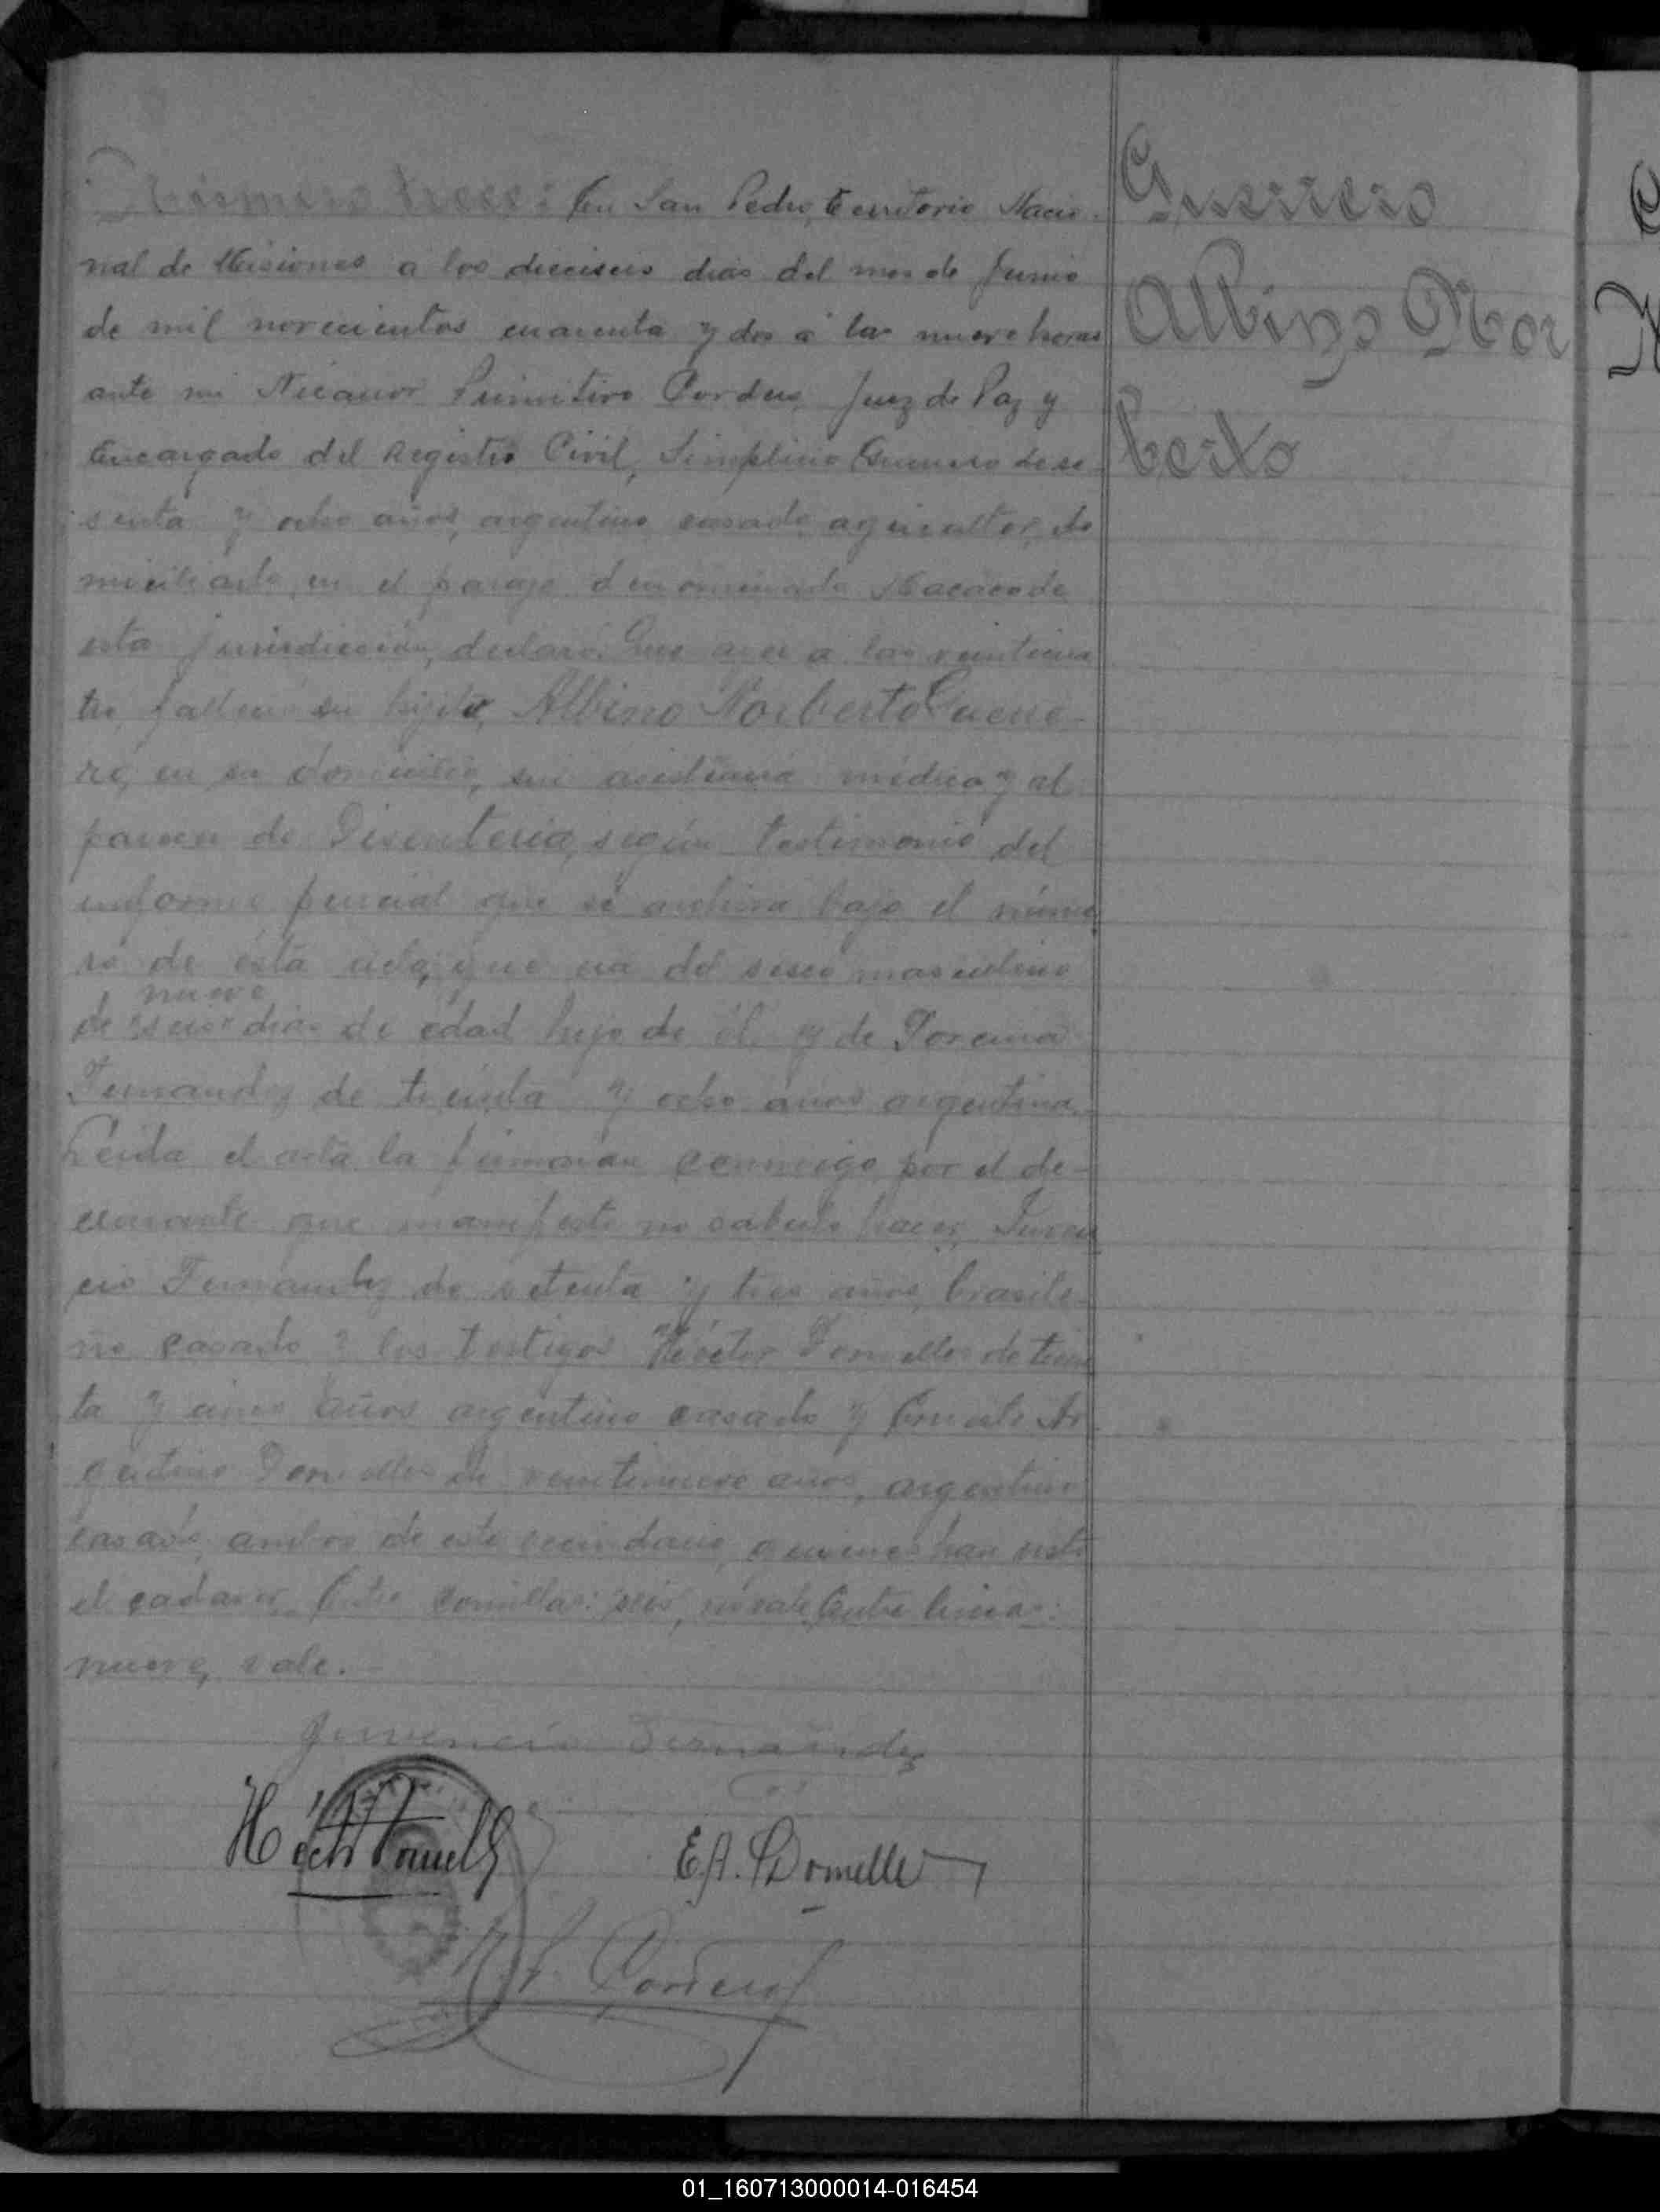 Número trece: En San Pedro, Territorio Nacio-
nal de Misiones a los dieciseis dias del mes de Junio
de mil novecientos cuarenta y dos a las nueve horas
ante mi Nicanor Primitivo Cordero, Juez de Paz y
Encargado del Registro Civil, Simplicio Guerrero de se-
senta y ocho años, argentino casado, agricultor, do
miciliado en el paraje denominado Macaco de
esta jurisdicción, declaró: Que ayer a las veinticua
tro, falleció su hijito, Albino Norberto Guerre-
ro, en su domicilio, sin asistencia médica y al
parecer de Disenteria, según testimonio del
informe que se archiva bajo el núme
ro de esta acta; que era del sexo masculino
nueve
de "seis" dias de edad hijo de él y de
Fernandez de treinta y ocho años argentina.
Leida el acta la firmaron conmigo por el de-
clarante que manifestó no saberlo hacer, Juven
cio Fernandez de setenta y tres años, brasile-
no casado y los testigos Héctor Dornelles de trein
ta y cinco años argentino casado y Ernesto Ar
gentino Dornelles de veintinueve años, argentino
casado, ambos de este vecindario, quienes han visto
el cadaver. Entre comillas: seis, no vale, Entre lineas:
nueve, vale.-
Juvencio Fernández
Héctor Dornelles
E.A. Dornelles
N. P. Cordero
Guerrero
Albino Nor
berto
01_160713000014-016454